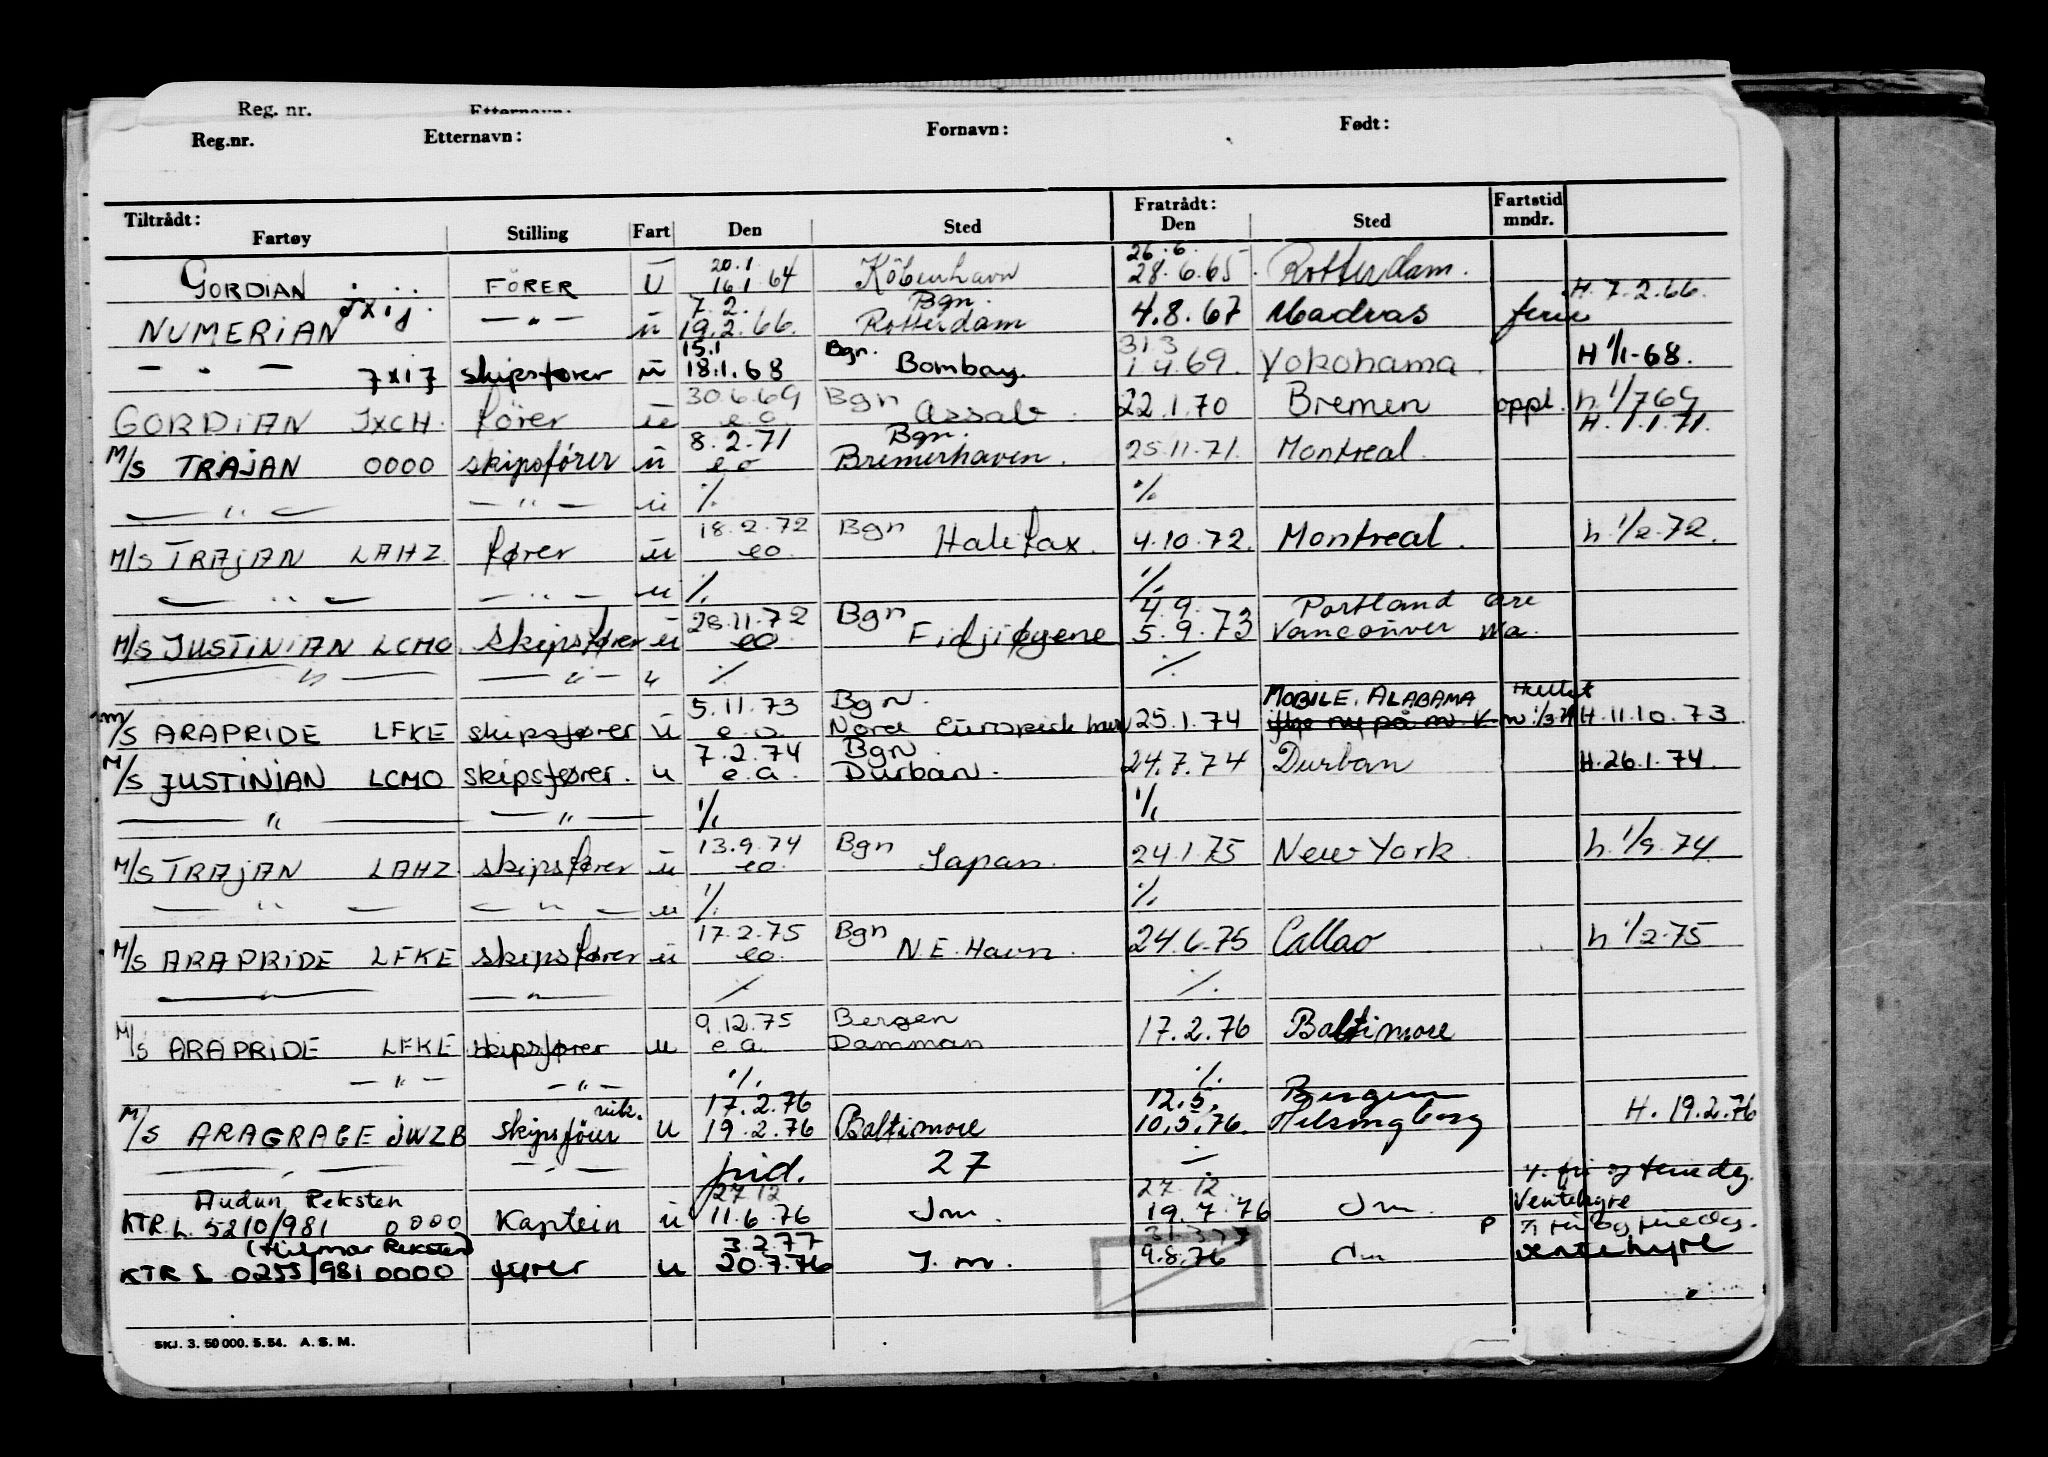 Reg. nr. Etternavn:
Reg.nr. Etternavn: Fornavn: Født:
Tiltrådt: Fratrådt: Fartstid
Fartøy Stilling Fart Den Sted Den Sted mndr.
20.1 26.6.
GORDIAN FÖRER U 16.1.64 Köbenhavn 28.6.65. Rotterdam.
jxij. 7.2. Bgn. H. 7.2.66.
NUMERIAN — " — ü 19.2.66. Rotterdam 4.8.67 Madras ferie
15.1 Bgn. 31.3
— " — 7x17 skipsfører ü 18.1.68 Bombay. 1.4.69. Yokohama H 1/1-68.
30.6.69 Bgn
GORDIAN JXCH. fører u e.o Assab. 22.1.70 Bremen oppl. h. 1/7 69
8.2.71 Bgn. H. 1.1.71.
M/S TRAJAN 0000 skipsfører ü e o Bremerhaven. 25.11.71. Montreal.
— " — — " — u ·/. ·/.
18.2.72 Bgn
M/S TRAJAN LAHZ fører ü eo. Halifax. 4.10.72. Montreal. h. 1/2.72.
— " — — " — u ·/. ·/.
28.11.72 Bgn 4.9. Portland Ore
M/S JUSTINIAN LCMO. skipsfører ü eo Fidjiøyene 5.9.73 Vancouver Wa.
— " — — " — " ·/. ·/.
5.11.73 Bgn. MOBILE, ALABAMA
M/S ARAPRIDE LFKE skipsfører ü e.o. Nord Europeisk havn 25.1.74 H.11.10.73
7.2.74 Bgn
M/S JUSTINIAN LCMO skipsfører. u e.a. Durban. 24.7.74 Durban H.26.1.74.
— " — — " — ·/. ·/.
13.9.74 Bgn
M/S TRAJAN LAHZ skipsfører ü eo. Japan. 24.1.75 New York h. 1/9.74
— " — — " — u ·/. ·/.
17.2.75 Bgn
M/S ARAPRIDE LFKE skipsfører ü eo. N.E. Havn. 24.6.75 Callao h. 1/2-75
— " — — " — ·/. ·/.
9.12.75 Bergen
M/S ARAPRIDE LFKE skipsfører u e.a. Damman 17.2.76 Baltimore
— " — — " — ·/. ·/.
vik. 17.2.76 12.5. Bergen
M/S ARAGRACE JWZB skipsfører u 19.2.76 Baltimore 10.5.76. Helsingborg H. 19.2.76
— " — — " — pid. 27 ·/.
Audun Reksten 27.12 27.12 Ventehyre
KTR.L. 5210/981 0000 Kaptein ü 11.6.76 Jm. 19.7.76 Jm.
(Hilmar Reksten) 3.2.77 31.3.77
KTR L 0255/981 0000 fører u 20.7.76 J.m. 9.8.76 Jm ventehyre
SKJ. 3. 50 000. 5.54. A. S. M.